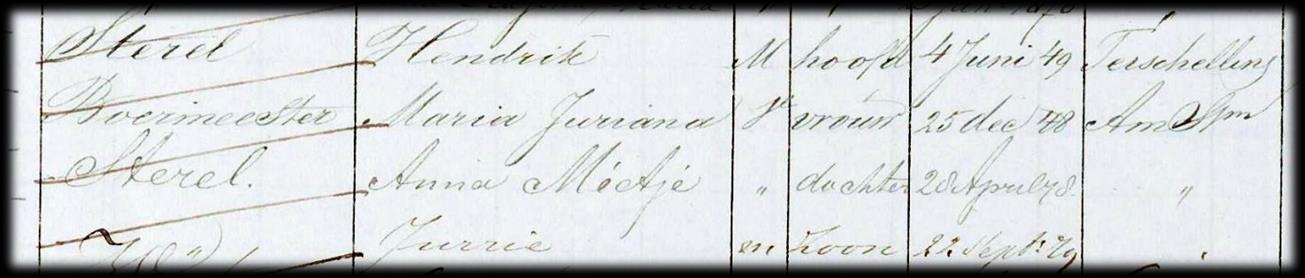 Sterel Hendrik M hoofd 4 Juni 49 Terschelling
Boermeester Maria Juriana Vr vrouw 25 dec 48 Amstm
Sterel. Anna Metje " dochter 28 April 78. "
Jurrie m zoon 22 Sept. 79 "